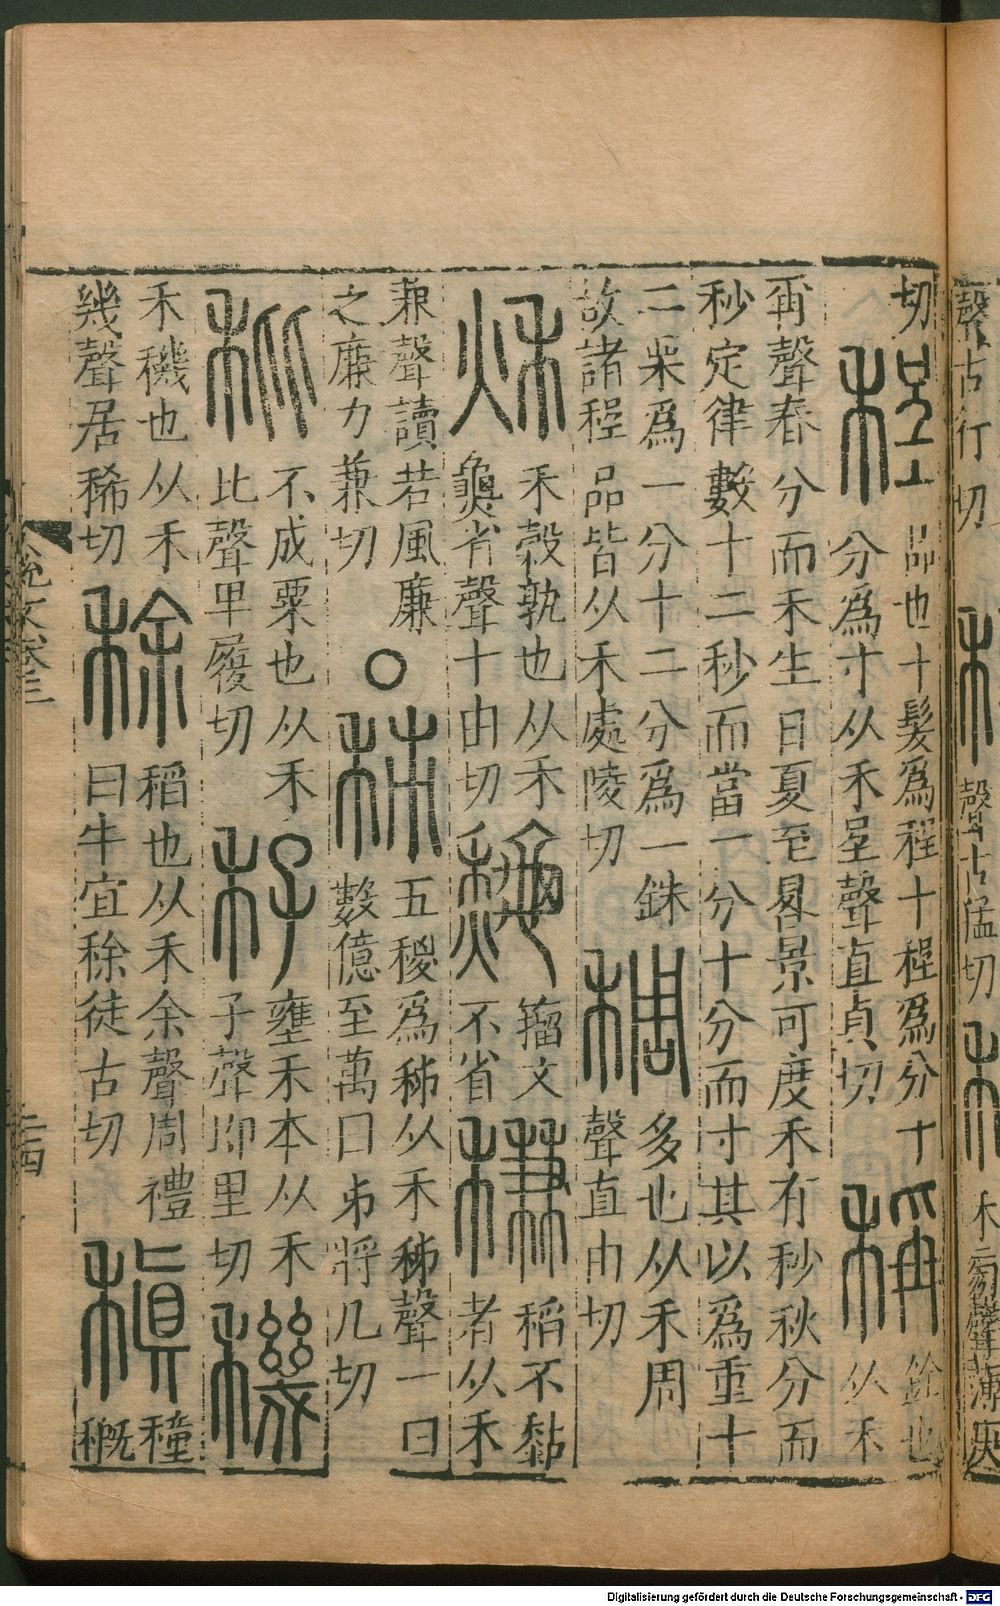 聲古行切
聲古猛切
切
程
品也十髮爲程十程爲分十
分爲寸从禾呈聲直貞切
稱
銓也
从禾
爯聲春分而禾生日夏至晷景可度禾有秒秋分而
秒定律數十二秒而當一分十分而寸其以爲重十
二粟爲一分十二分爲一銖
故諸程品皆从禾處陵切
稠
多也从禾周
聲直由切
秌
禾穀孰也从禾
龝省聲十由切
龝
籒文
不省
稴
稻不黏
者从禾
兼聲讀若風廉
之廉力兼切
○
秭
五稯爲秭从禾秭聲一曰
數億至萬曰𠂔將几切
秕
不成粟也从禾
比聲卑履切
秄
壅禾本从禾
子聲即里切
穖
禾穖也从禾
幾聲居稀切
稌
稻也从禾余聲周禮
曰牛宜稌徒古切
稹
穜
穊
說文卷三
二四
Digitalisierung gefördert durch die Deutsche Forschungsgemeinschaft - DFG